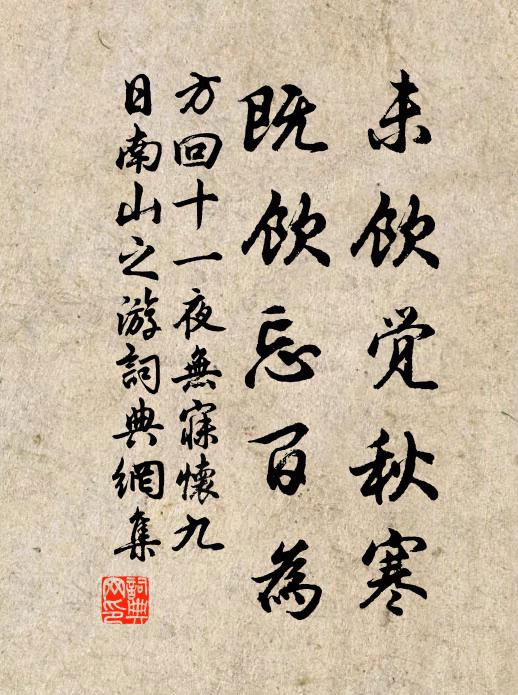 未饮觉秋寒
既饮忘百為
方回十一夜無寐懷九
日南山之游詞典網集
詞典網印